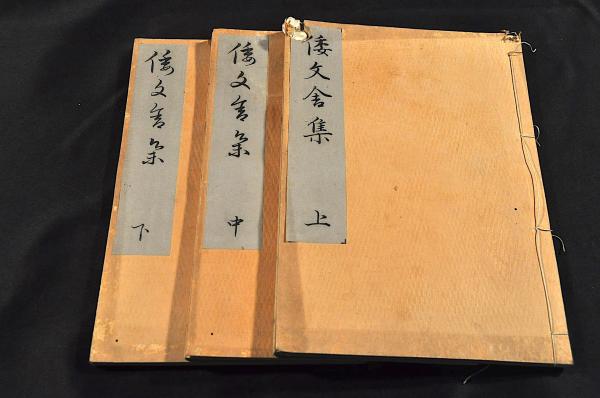 倭文舎集 上
倭文舎集 中
倭文舎集 下